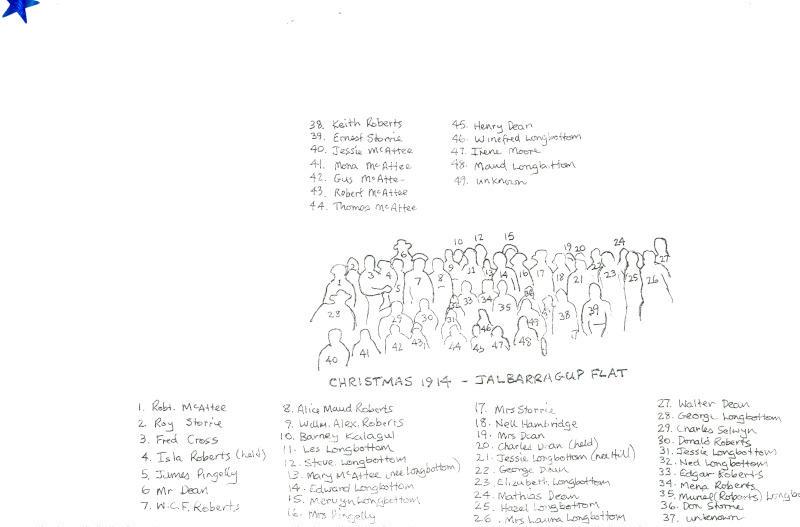 38. Keith Roberts
39. Ernest Storrie
40. Jessie McAttee
41. Mona McAttee
42. Gus McAtte
43. Robert McAttee
44. Thomas McAttee
45. Henry Dean
46. Winifred Longbottom
47. Irene Moore
48. Maud Longbottom
49. unknown
CHRISTMAS 1914 - JALBARRAGUP FLAT
1. Robt. McAttee
2. Roy Storrie
3. Fred Cross
4. Isla Roberts (held)
5. James Pingelly
6 Mr Dean
7. W.C.F. Roberts
8. Alice Maud Roberts
9. Willm. Alex. Roberts
10. Barney Kalagul
11. Les Longbottom
12. Steve Longbottom
13. Mary McAttee (nee Longbottom)
14. Edward Longbottom
15. Mervyn Longbottom
16. Mrs Pingelly
17. Mrs Storrie
18. Nell Hambridge
19. Mrs Dean
20. Charles Dean (held)
21. Jessie Longbottom (nee Hill)
22. George Dean
23. Elizabeth Longbottom
24. Mathias Dean
25. Hazel Longbottom
26. Mrs Laura Longbottom
27. Walter Dean
28. George Longbottom
29. Charles Selwyn
30. Donald Roberts
31. Jessie Longbottom
32. Ned Longbottom
33. Edgar Roberts
34. Mena Roberts
35. Muriel (Roberts) Longbo
36. Don Storrie
37. unknown